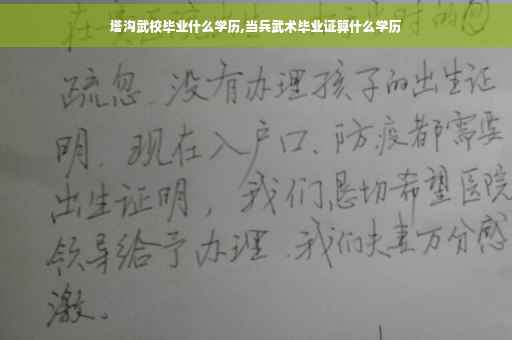 塔沟武校毕业什么学历,当兵武术毕业证算什么学历
疏忽、没有办理孩子的出生证
明、现在入户口、防疫都需要
出生证明，我们恳切希望医院
领导给予办理、我们夫妻万分感
激。